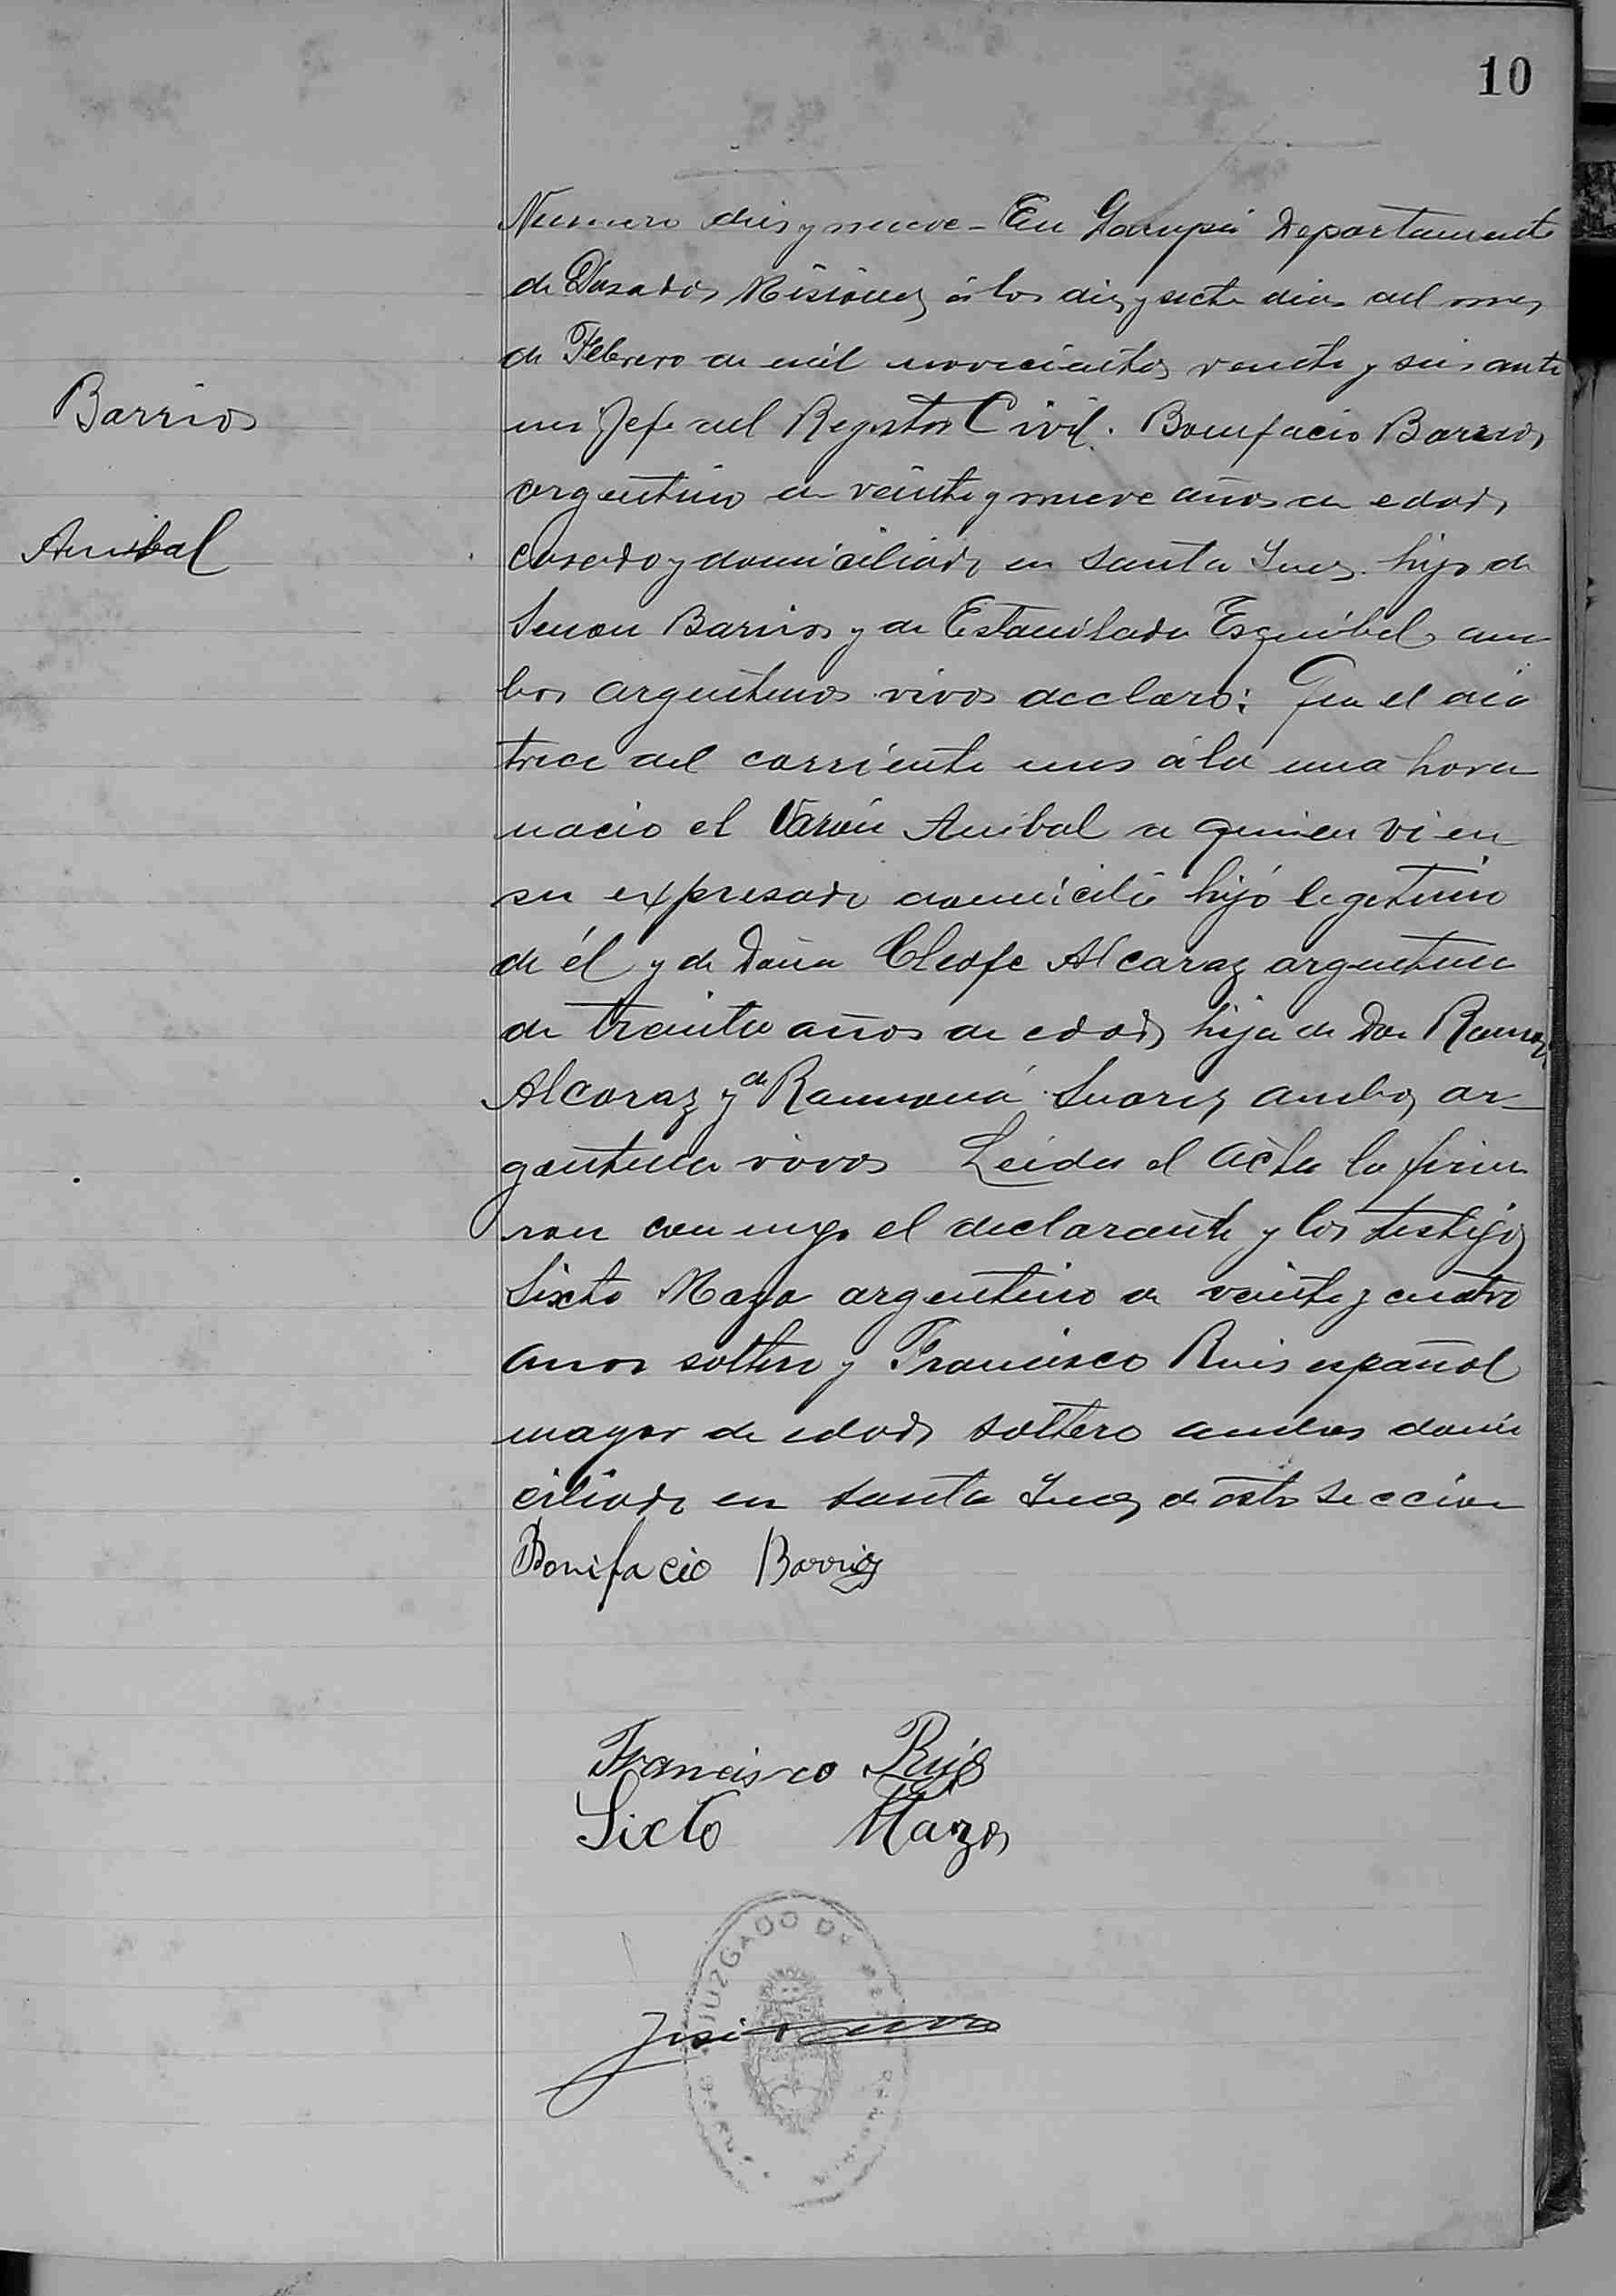 10
Numero dies y nueve - En Garupá Departamento
de Posadas Misiones á los diez y siete dias del mes
de Febrero de mil novecientos veinte y seis ante
mi Jefe del Registro Civil. Bonifacio Barrios
Barrios
argentino de veinte y nueve años de edad,
Anibal
casado y domiciliado en Santa Ines. hijo de
Senon Barrios y de Estanilada Esquibel am
bos argentinos vivos declaro: Que el dia
trece del corriente mes á la una hora
nacio el Varón Anibal a quien vi en
su expresado domicilio hijo legetimo
de él y de Doña Cleofe Alcaraz argentina
de treinta años de edad, hija de Don Ramon
Alcaraz y de Ramona Suarez ambos ar-
gentinos vivos Leida el Acta la firma
ron con migo el declarante y los testigos
Sixto argentino de veinte y cuatro
anos soltero y Francisco Ruis español
mayor de edad, soltero ambos domi
ciliado en Santa Ines de esta Seccion
Bonifacio Barrios
Francisco Ruis
Sixto
JUZGADO DE PAZ
José